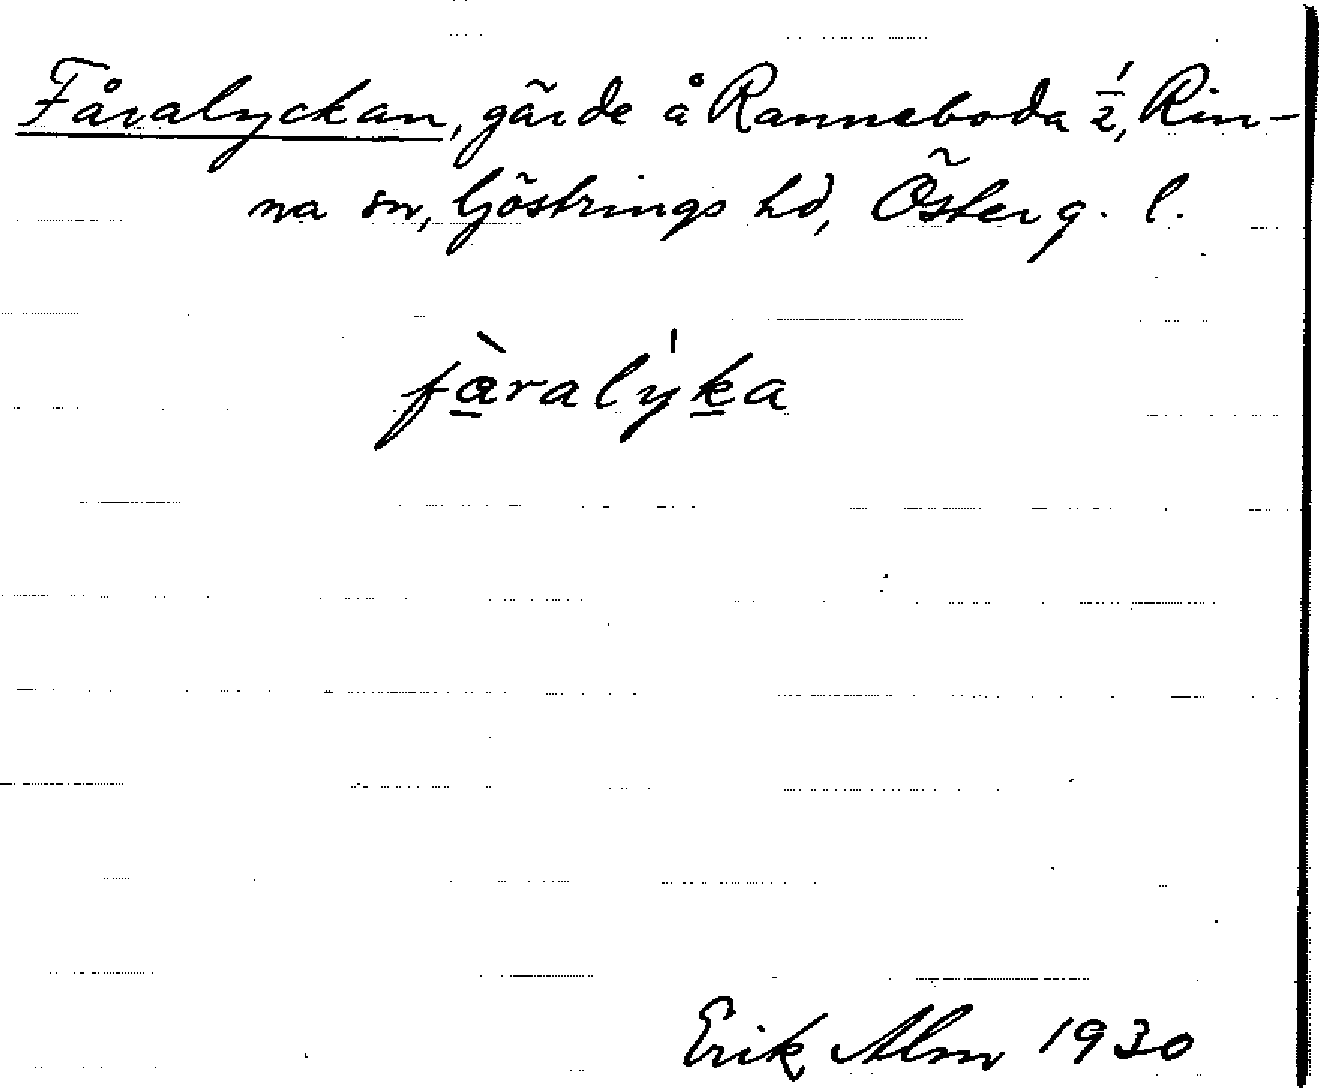 Fåralyckan, gärde å Ranneboda ½, Rin-
na sn, Göstrings hd, Österg. l.
fàralýka
Erik Alm 1930